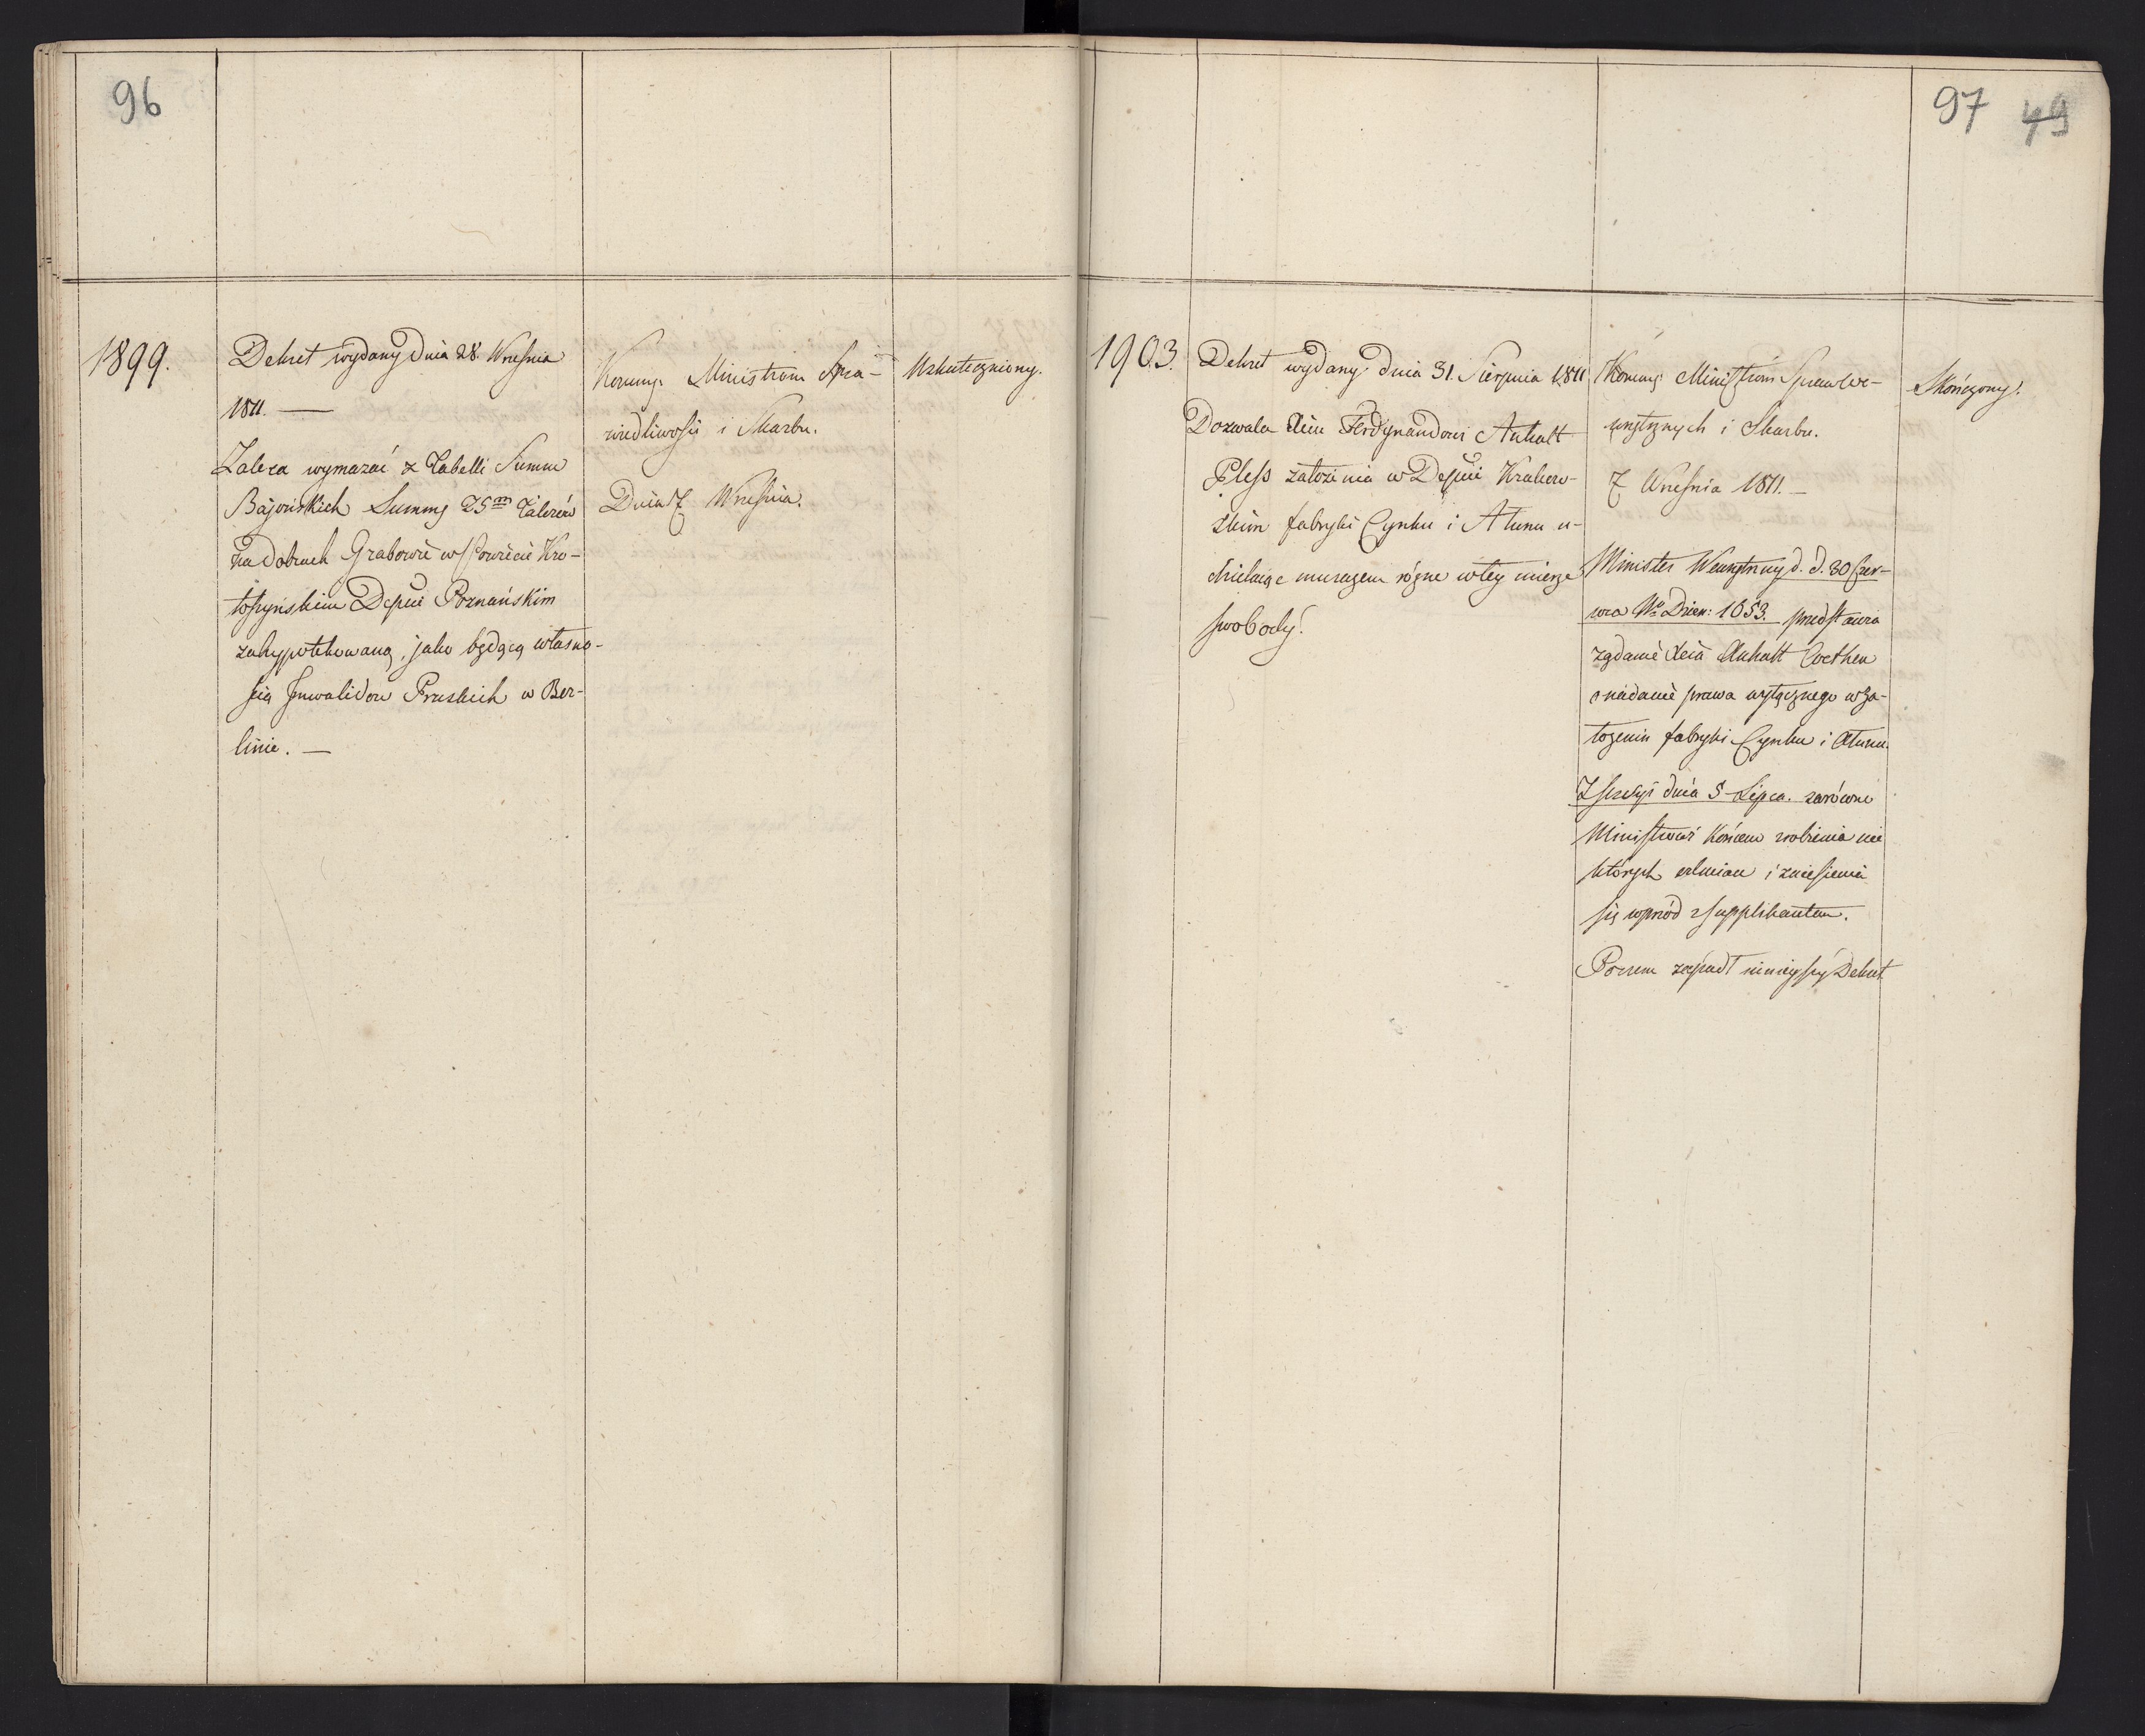 96
1899.
Dekret wydany dnia 28. Wresnia
1811. —
Zaleca wymazać z Tabelli Summ
Bajońskich Summę 25m Talerów
na dobrach Grabowie w Powiecie Kro-
toszyńskim Depcie Poznańskim
zahypotekowaną, jako będącą własno-
scią Inwalidow Pruskich w Ber-
linie. —
Kommu. Ministrom Spra-
wiedliwosci i Skarbu.
Dnia 7 Wrzesnia.
Uskuteczniony.
97 49
1903.
Dekret wydany dnia 31. Sierpnia 1811
Dozwala Xciu Ferdynandowi Anhalt
Pless założenia w Depcie Krakow-
skim fabryki Cynku i Ałunu u-
dzielaiąc mu razem różne w tey mierze
swobody.
Kommu. Ministróm Spraw We-
wnętrznych i Skarbu.
7 Wresnia 1811. —
Minister Wewnętrzny d. d. 30 Czer-
wca No Dzien: 1653. predstawia
żądanie Xcia Anhalt Coethen
o nadanie prawa wyłącznego w za-
łożeniu fabryki Cynku i Ałunu.
Z sessyi dnia 5 Lipca. zwrócone
Ministrowi końcem zrobienia nie
których odmian i zniesienia
się wprzód z supplikantem.
Poczem zapadł ninieyszy Dekret
Skończony.